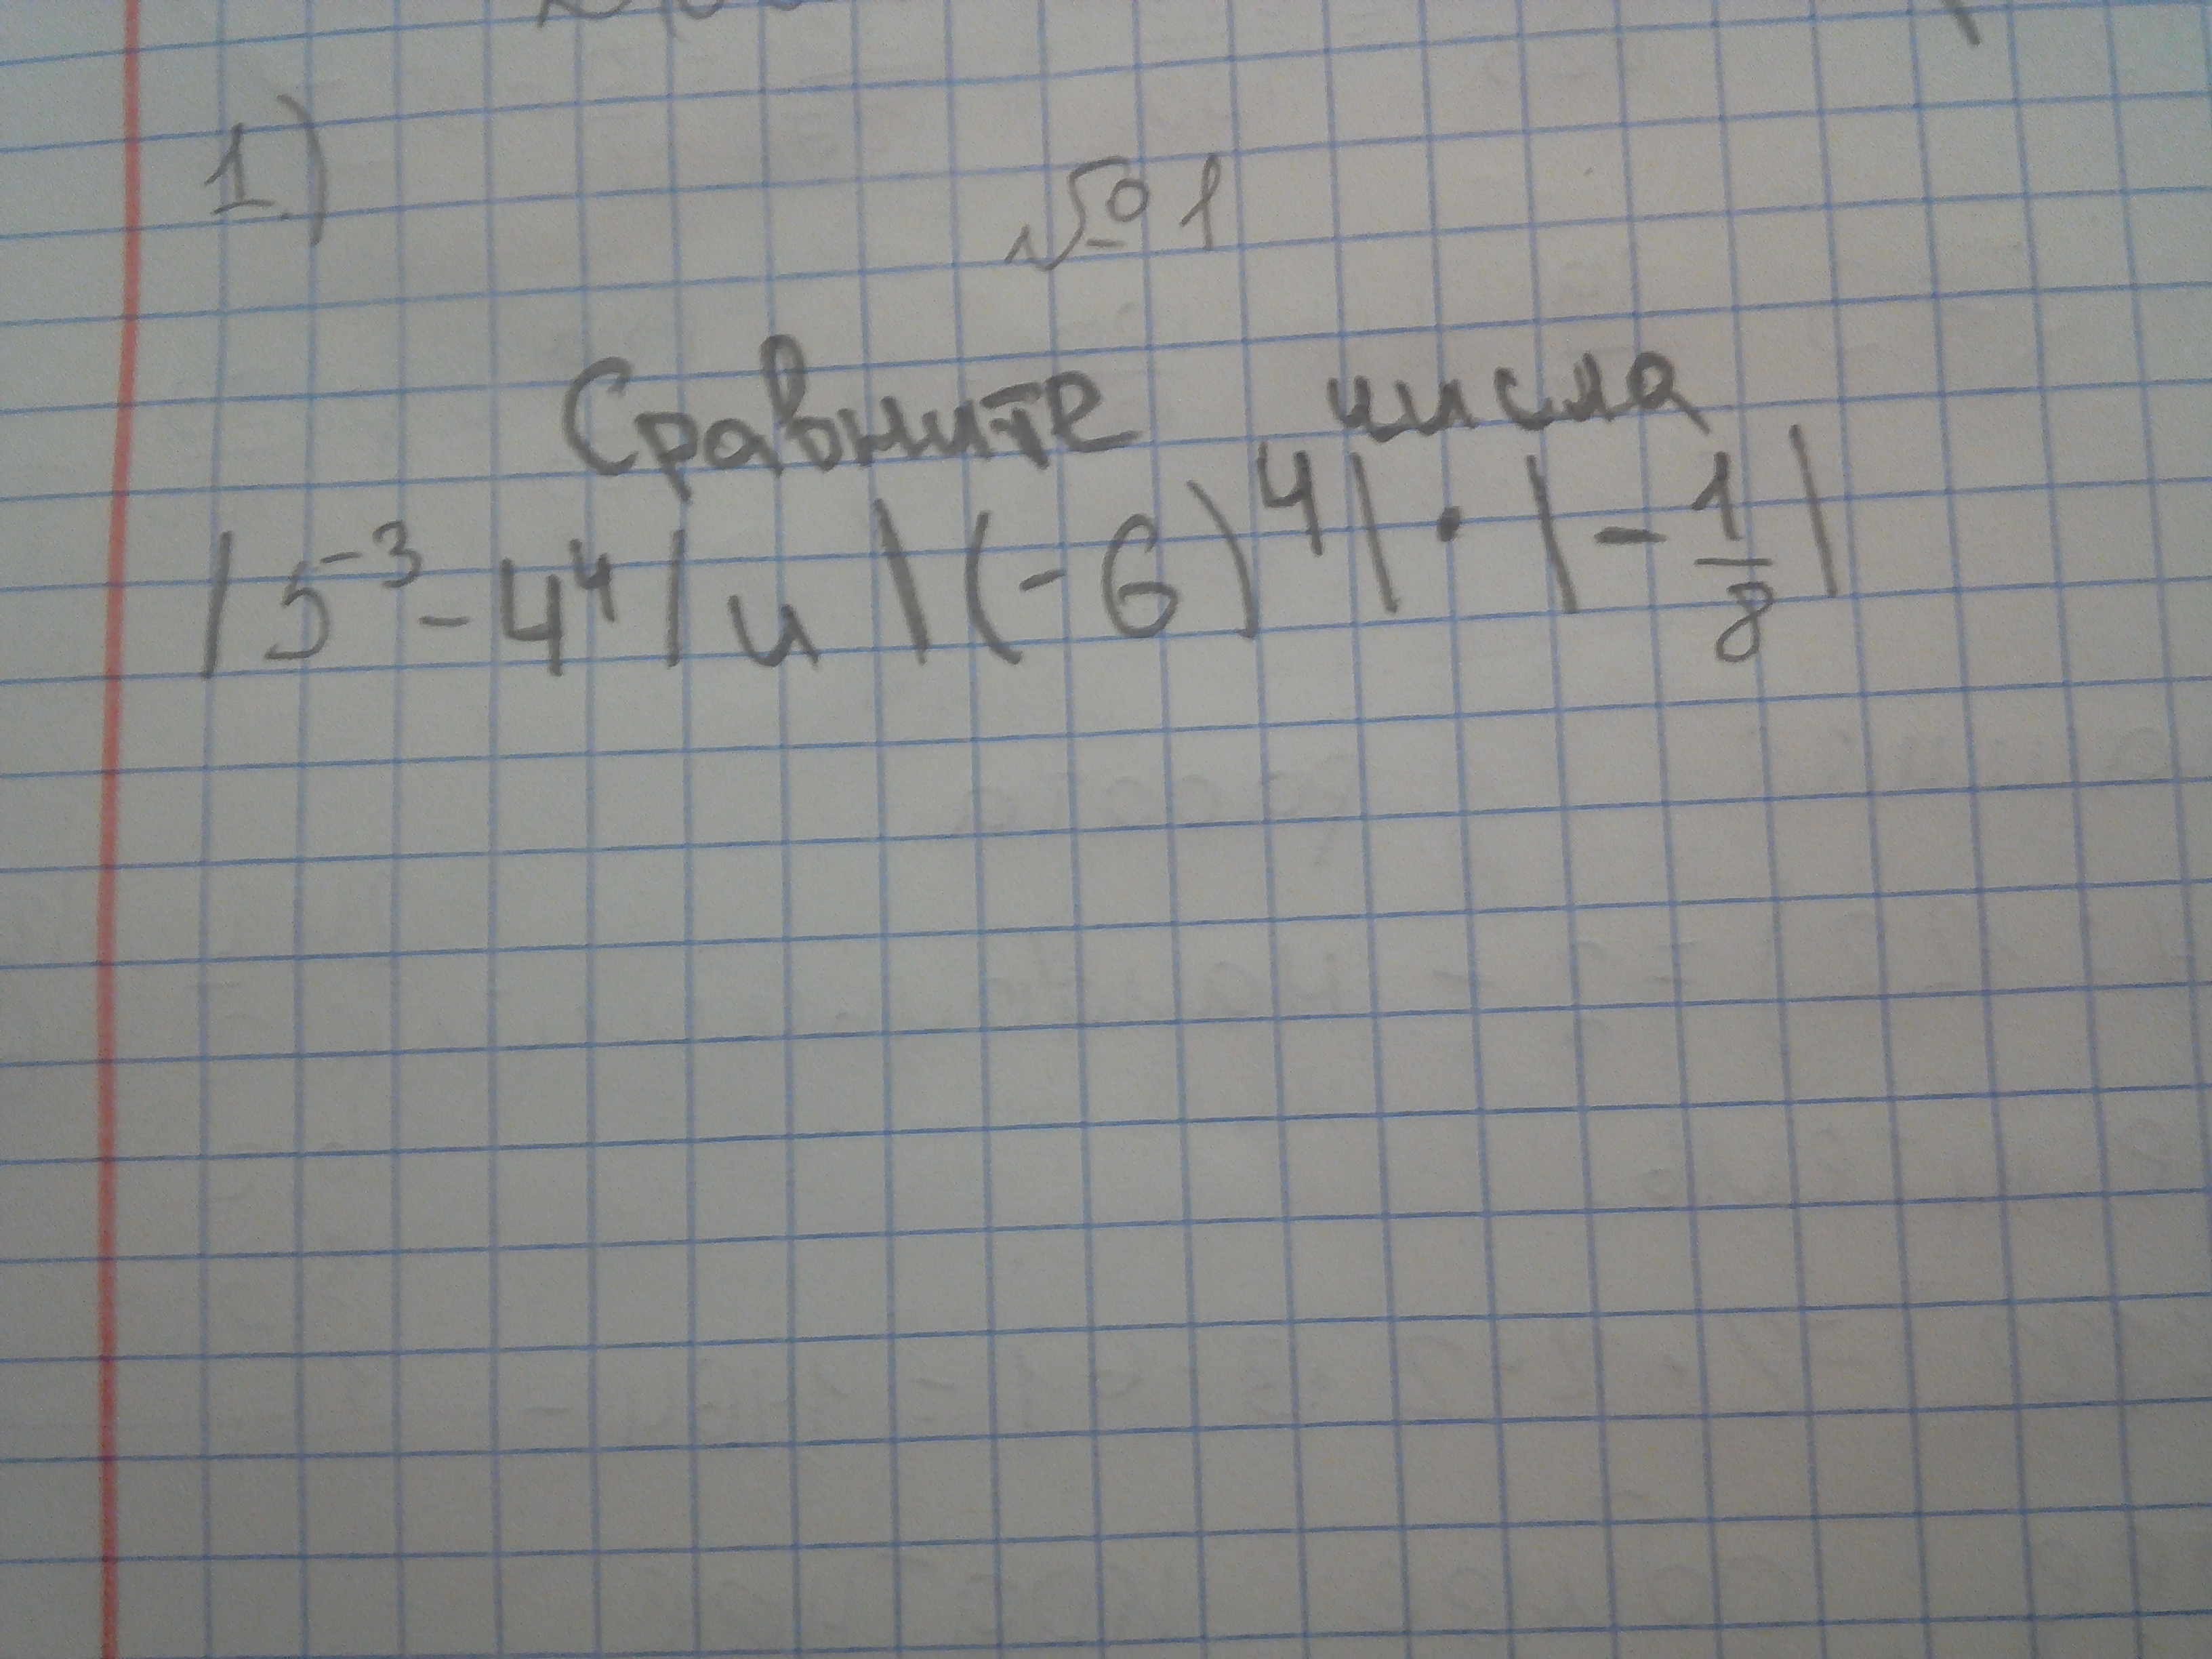 1)
№1
Сравните числа
|5⁻³-4⁴| и |(-6)⁴|·|-1/8|